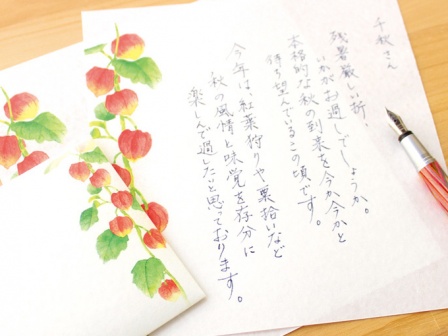 千秋さん
残暑厳しい折、
いかがお過しでしょうか。
本格的な秋の到来を今か今かと
待ち望んでいるこの頃です。
今年は、紅葉狩りや栗拾いなど
秋の風情と味覚を存分に
楽しんで過したいと思っております。